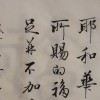 耶和華
所賜的福
足并不加